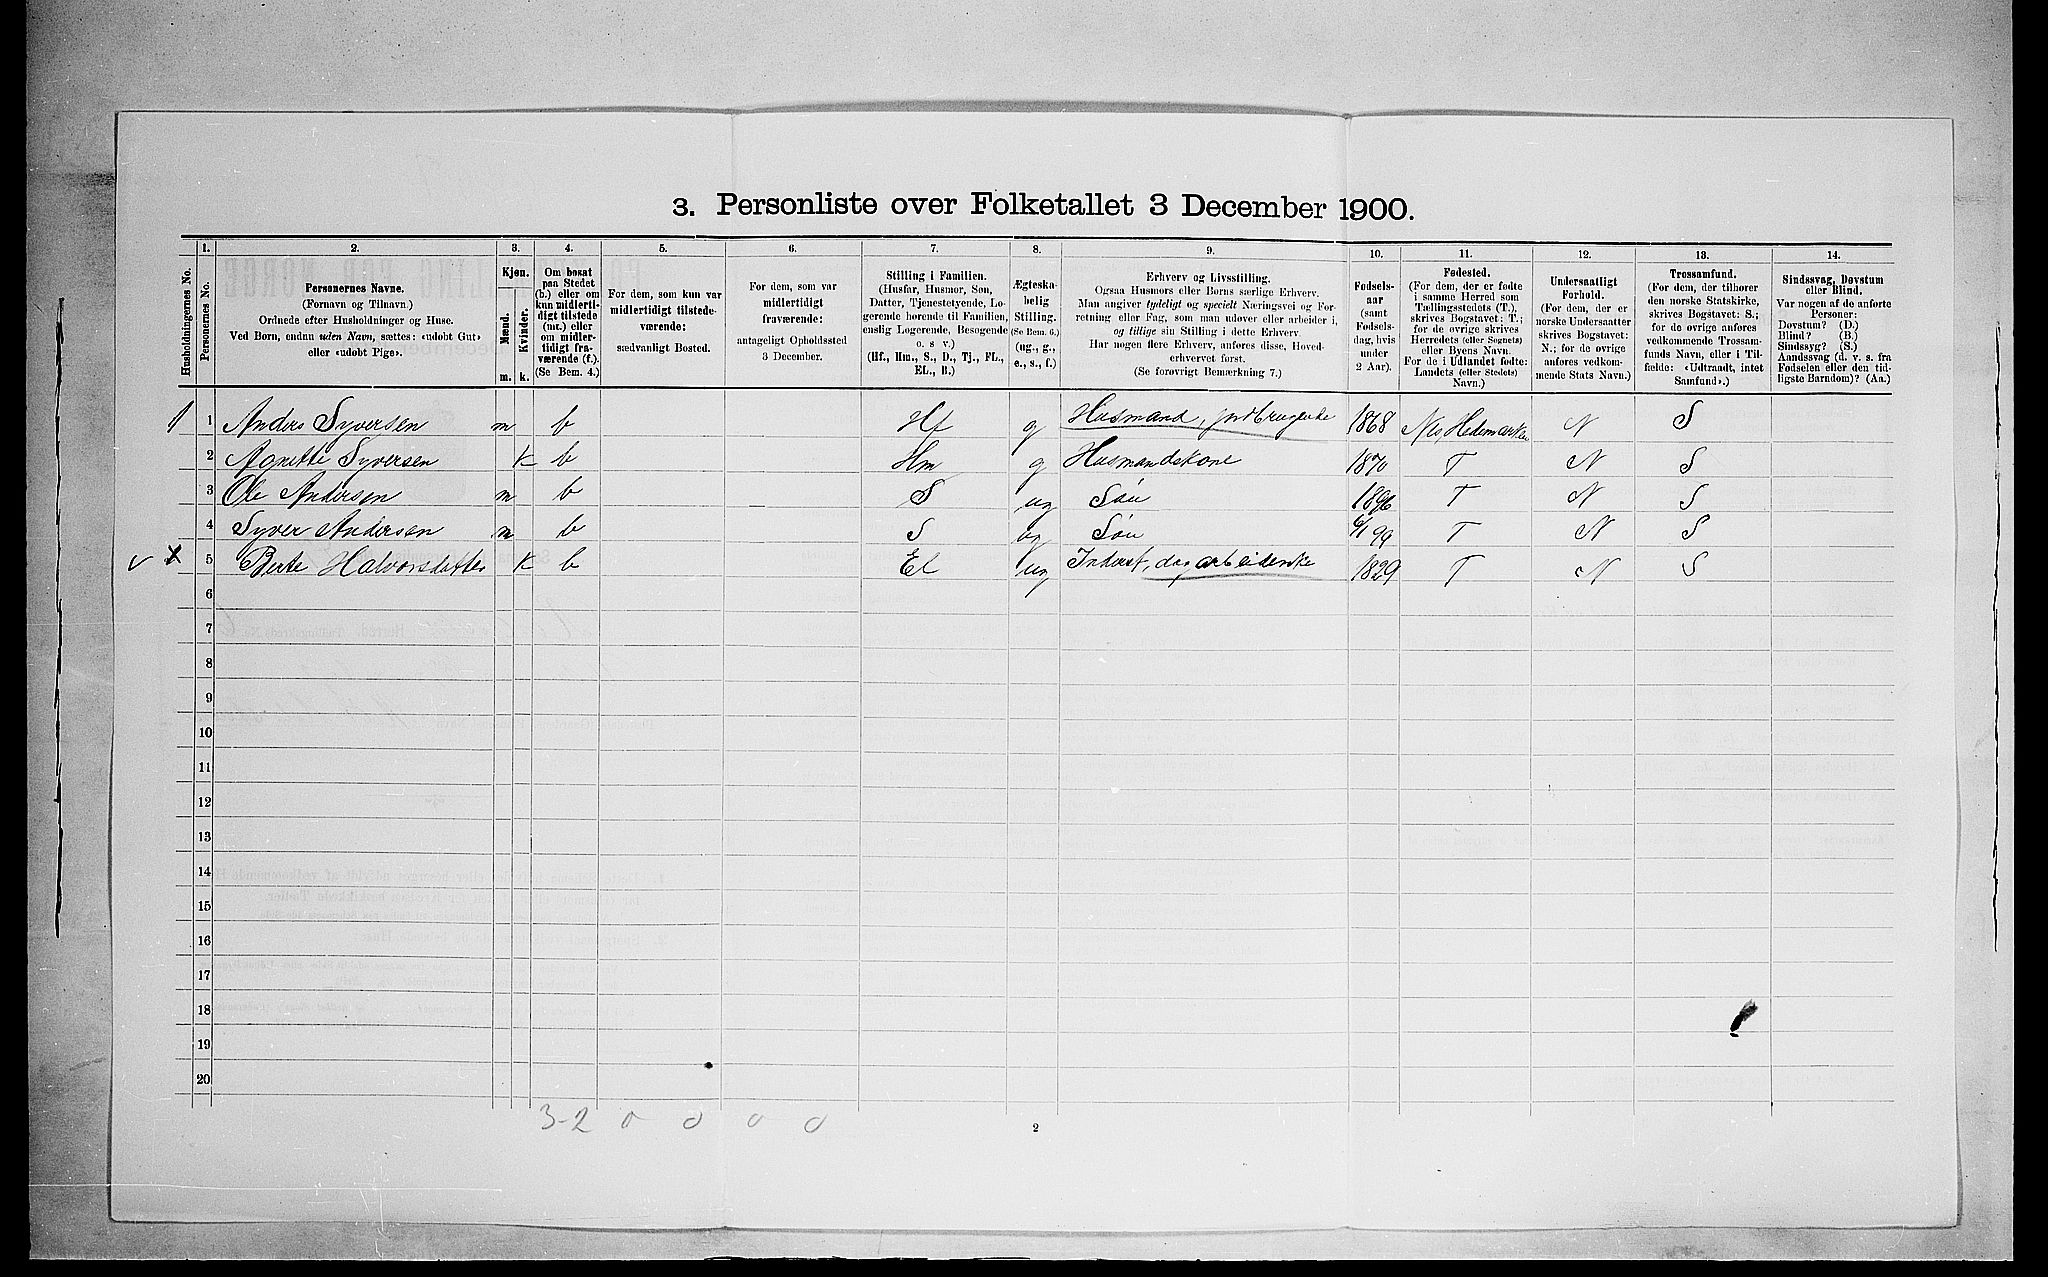 3. Personliste over Folketallet 3 December 1900.
Husholdningernes No.
1. Personernes No.
2. Personernes Navne.
(Fornavn og Tilnavn.)
Ordnede efter Husholdninger og Huse.
Ved Børn, endnu uden Navn, sættes: «udøbt Gut»
eller «udøbt Pige».
3. Kjøn.
Mænd. m.
Kvinder. k.
4. Om bosat
paa Stedet
(b.) eller om
kun midlerti-
digt tilstede
(mt.) eller
om midler-
tidigt fra-
værende (f.).
(Se Bem. 4.)
5. For dem, som kun var
midlertidigt tilstede-
værende:
sædvanligt Bosted.
6. For dem, som var
midlertidigt
fraværende:
antageligt Opholdssted
3 December.
7. Stilling i Familien.
(Husfar, Husmor, Søn,
Datter, Tjenestetyende, Lo-
gerende hørende til Familien,
enslig Logerende, Besøgende
o. s. v.)
(Hf., Hm., S., D., Tj., FL.,
EL., B.)
8. Ægteska-
belig
Stilling.
(Se Bem. 6.)
(ug., g.,
e., s., f.)
9. Erhverv og Livsstilling.
Ogsaa Husmors eller Børns særlige Erhverv.
Man angiver tydeligt og specielt Næringsvei og For-
retning eller Fag, som man udøver eller arbeider i,
og tillige sin Stilling i dette Erhverv.
Har nogen flere Erhverv, anføres disse, Hoved-
erhvervet først.
(Se forøvrigt Bemærkning 7.)
10. Fødsels-
aar
(samt
Fødsels-
dag, hvis
under
2 Aar).
11. Fødested.
(For dem, der er fødte
i samme Herred som
Tællingsstedets (T.),
skrives Bogstavet: T.;
for de øvrige skrives
Herredets (eller Sognets)
eller Byens Navn.
For de i Udlandet fødte:
Landets (eller Stedets)
Navn.)
12. Undersaatligt
Forhold.
(For dem, der er
norske Undersaatter
skrives Bogstavet:
N.; for de øvrige
anføres vedkom-
mende Stats Navn.)
13. Trossamfund.
(For dem, der tilhører
den norske Statskirke,
skrives Bogstavet: S.;
for de øvrige anføres
vedkommende Trossam-
funds Navn, eller i Til-
fælde: «Udtraadt, intet
Samfund».)
14. Sindssvag, Døvstum
eller Blind.
Var nogen af de anførte
Personer:
Døvstum? (D.)
Blind? (B.)
Sindssyg? (S.)
Aandssvag (d. v. s. fra
Fødselen eller den tid-
ligste Barndom)? (Aa.)
1 1 Anders Syversen m b Hf g Husmand, jordbrugende 1868 Nes, Hedemarken N S
2 Agnette Syversen k b Hm g Husmandskone 1870 T N S
3 Ole Andersen m b S ug Søn 1896 T N S
4 Syver Andersen m b S ug Søn 6/1 99 T N S
v x 5 Berte Halvorsdatter k b El ug Inderst, dagarbeiderske 1829 T N S
6
7
8
9
10
11
12
13
14
15
16
17
18
19
20
3-2 0 0 0 0
2